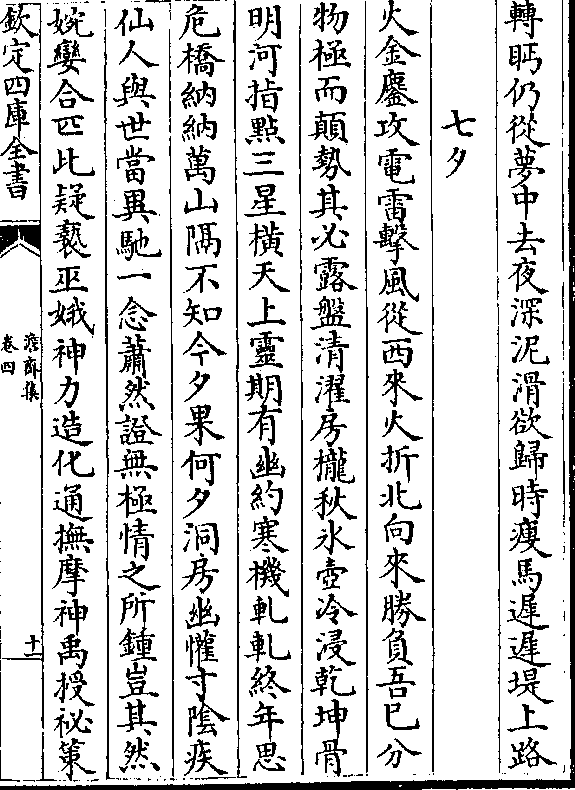 轉眄仍從夢中去夜深泥滑欲歸時瘦馬遲遲堤上路
七夕
火金鏖攻電雷擊風從西來火折北向來勝負吾已分
物極而顛勢其必露盤清濯房櫳秋氷壺冷浸乾坤骨
明河指點三星橫天上靈期有幽約寒機軋軋終年思
危橋納納萬山隔不知今夕果何夕洞房幽懽寸陰疾
仙人與世當異馳一念蕭然證無極情之所鍾豈其然
婉孌合匹此疑褻巫娥神力造化通撫摩神禹授祕策
欽定四庫全書
澹齋集
卷四
十一